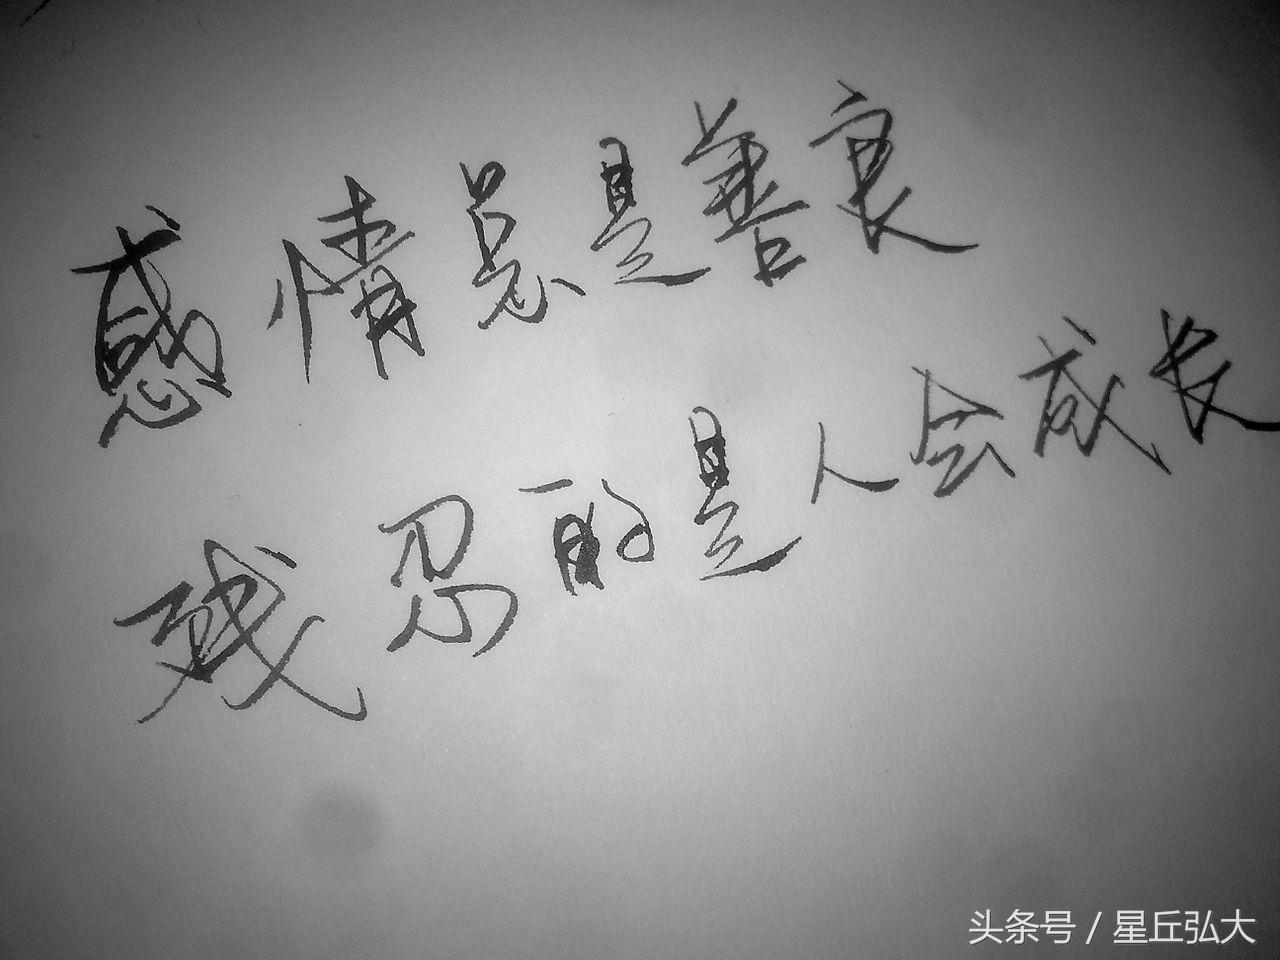 感情总是善良
残忍的是人会成长
头条号 / 星丘弘大